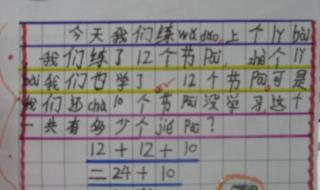 今天我们练wǔdǎo,上个lǐ bài
我们练了12个节Pāi,zhè个lǐ
bài我们也学了12个节Pāi可是
我们还chà10个节Pāi没学习这个
一共有多少个jié Pāi?
12+12+10
=24+10